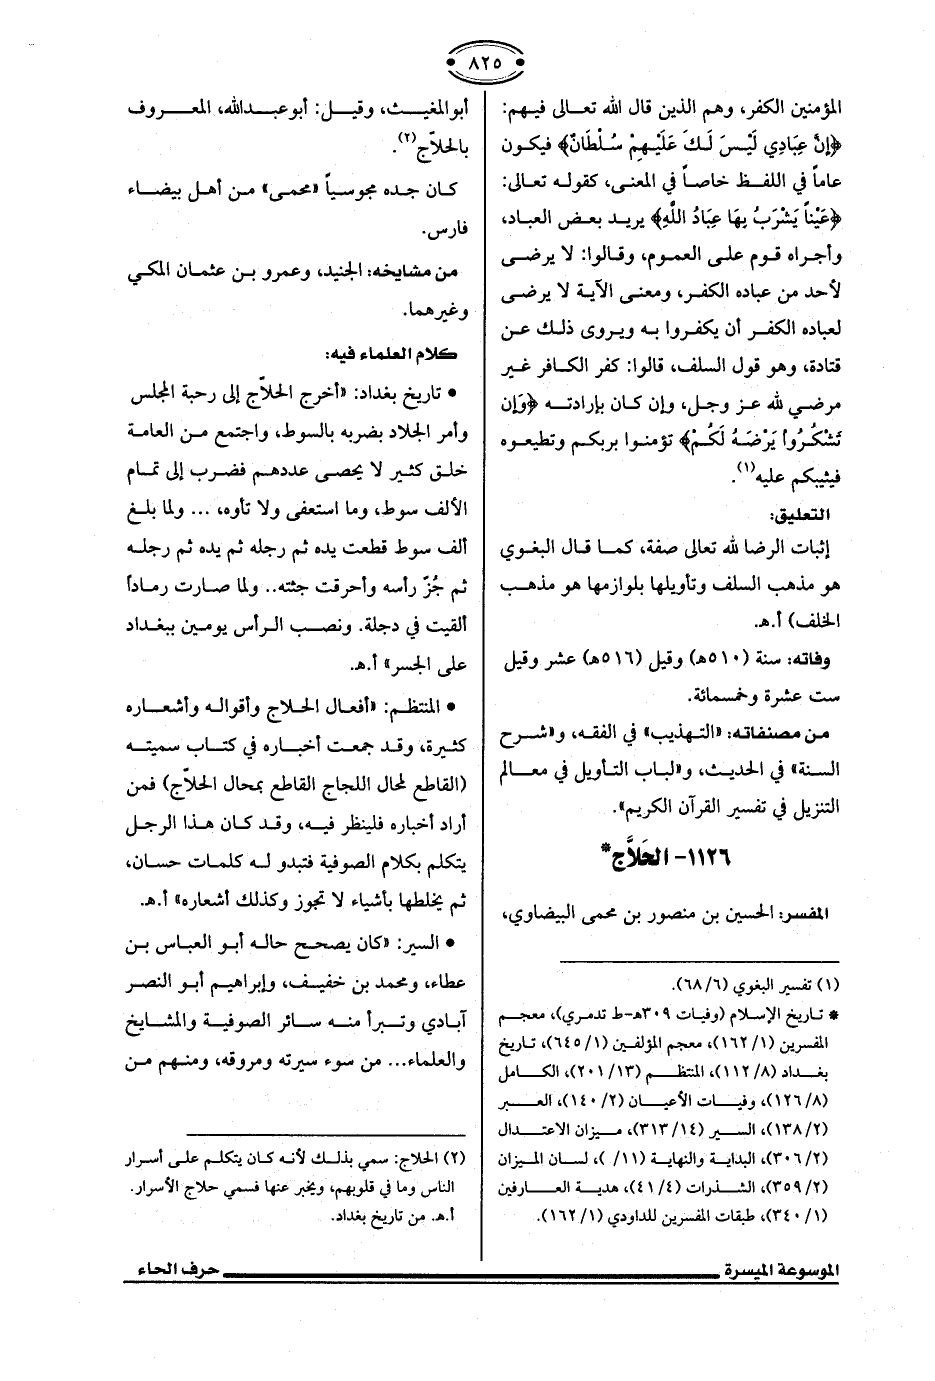 ٨٢٥
المؤمنين الكفر، وهم الذين قال الله تعالى فيهم:
﴿إِنَّ عِبَادِي لَيْسَ لَكَ عَلَيْهِمْ سُلْطَانٌ﴾ فيكون
عاماً في اللفظ خاصاً في المعنى، كقوله تعالى:
﴿عَيْناً يَشْرَبُ بِهَا عِبَادُ اللَّهِ﴾ يريد بعض العباد،
وأجراه قوم على العموم، وقالوا: لا يرضى
لأحد من عباده الكفر، ومعنى الآية لا يرضى
لعباده الكفر أن يكفروا به ويروى ذلك عن
قتادة، وهو قول السلف، قالوا: كفر الكافر غير
مرضي لله عز وجل، وإن كان بإرادته ﴿وَإِن
تَشْكُرُواْ يَرْضَهُ لَكُمْ﴾ تؤمنوا بربكم وتطيعوه
فيثيبكم عليه(١).
التعليق:
إثبات الرضا لله تعالى صفة، كما قال البغوي
هو مذهب السلف وتأويلها بلوازمها هو مذهب
الخلف) أ.هـ.
وفاته: سنة (٥١٠هـ) وقيل (٥١٦هـ) عشر وقيل
ست عشرة وخمسمائة.
من مصنفاته: «التهذيب» في الفقه، و«شرح
السنة» في الحديث، و«لباب التأويل في معالم
التنزيل في تفسير القرآن الكريم».
١١٢٦- الحَلاَّج*
المفسر: الحسين بن منصور بن محمى البيضاوي،
(١) تفسير البغوي (٦/ ٦٨).
* تاريخ الإسلام (وفيات ٣٠٩هـ-ط تدمري)، معجم
المفسرين (١/ ١٦٢)، معجم المؤلفين (١/ ٦٤٥)، تاريخ
بغداد (٨/ ١١٢)، المنتظم (١٣/ ٢٠١)، الكامل
(٨/ ١٢٦)، وفيات الأعيان (٢/ ١٤٠)، العبر
(٢/ ١٣٨)، السير (١٤/ ٣١٣)، ميزان الاعتدال
(٢/ ٣٠٦)، البداية والنهاية (١١/ )، لسان الميزان
(٢/ ٣٥٩)، الشذرات (٤/ ٤١)، هدية العارفين
(١/ ٣٤٠)، طبقات المفسرين للداودي (١/ ١٦٢).
أبو المغيث، وقيل: أبو عبدالله، المعروف
بالحلاّج(٢).
كان جده مجوسياً «محمى» من أهل بيضاء
فارس.
من مشايخه: الجنيد، وعمرو بن عثمان المكي
وغيرهما.
كلام العلماء فيه:
• تاريخ بغداد: «أخرج الحلاّج إلى رحبة المجلس
وأمر الجلاد بضربه بالسوط، واجتمع من العامة
خلق كثير لا يحصى عددهم فضرب إلى تمام
الألف سوط، وما استعفى ولا تأوه، ... ولما بلغ
ألف سوط قطعت يده ثم رجله ثم يده ثم رجله
ثم جُزّ رأسه وأحرقت جثته.. ولما صارت رماداً
ألقيت في دجلة. ونصب الرأس يومين ببغداد
على الجسر» أ.هـ.
• المنتظم: «أفعال الحلاج وأقواله وأشعاره
كثيرة، وقد جمعت أخباره في كتاب سميته
(القاطع لمحال اللجاج القاطع بمحال الحلاّج) فمن
أراد أخباره فلينظر فيه، وقد كان هذا الرجل
يتكلم بكلام الصوفية فتبدو له كلمات حسان،
ثم يخلطها بأشياء لا تجوز وكذلك أشعاره» أ.هـ.
• السير: «كان يصحح حاله أبو العباس بن
عطاء، ومحمد بن خفيف، وإبراهيم أبو النصر
آبادي وتبرأ منه سائر الصوفية والمشايخ
والعلماء... من سوء سيرته ومروقه، ومنهم من
(٢) الحلاج: سمي بذلك لأنه كان يتكلم على أسرار
الناس وما في قلوبهم، ويخبر عنها فسمي حلاج الأسرار.
أ.هـ. من تاريخ بغداد.
الموسوعة الميسرة حرف الحاء